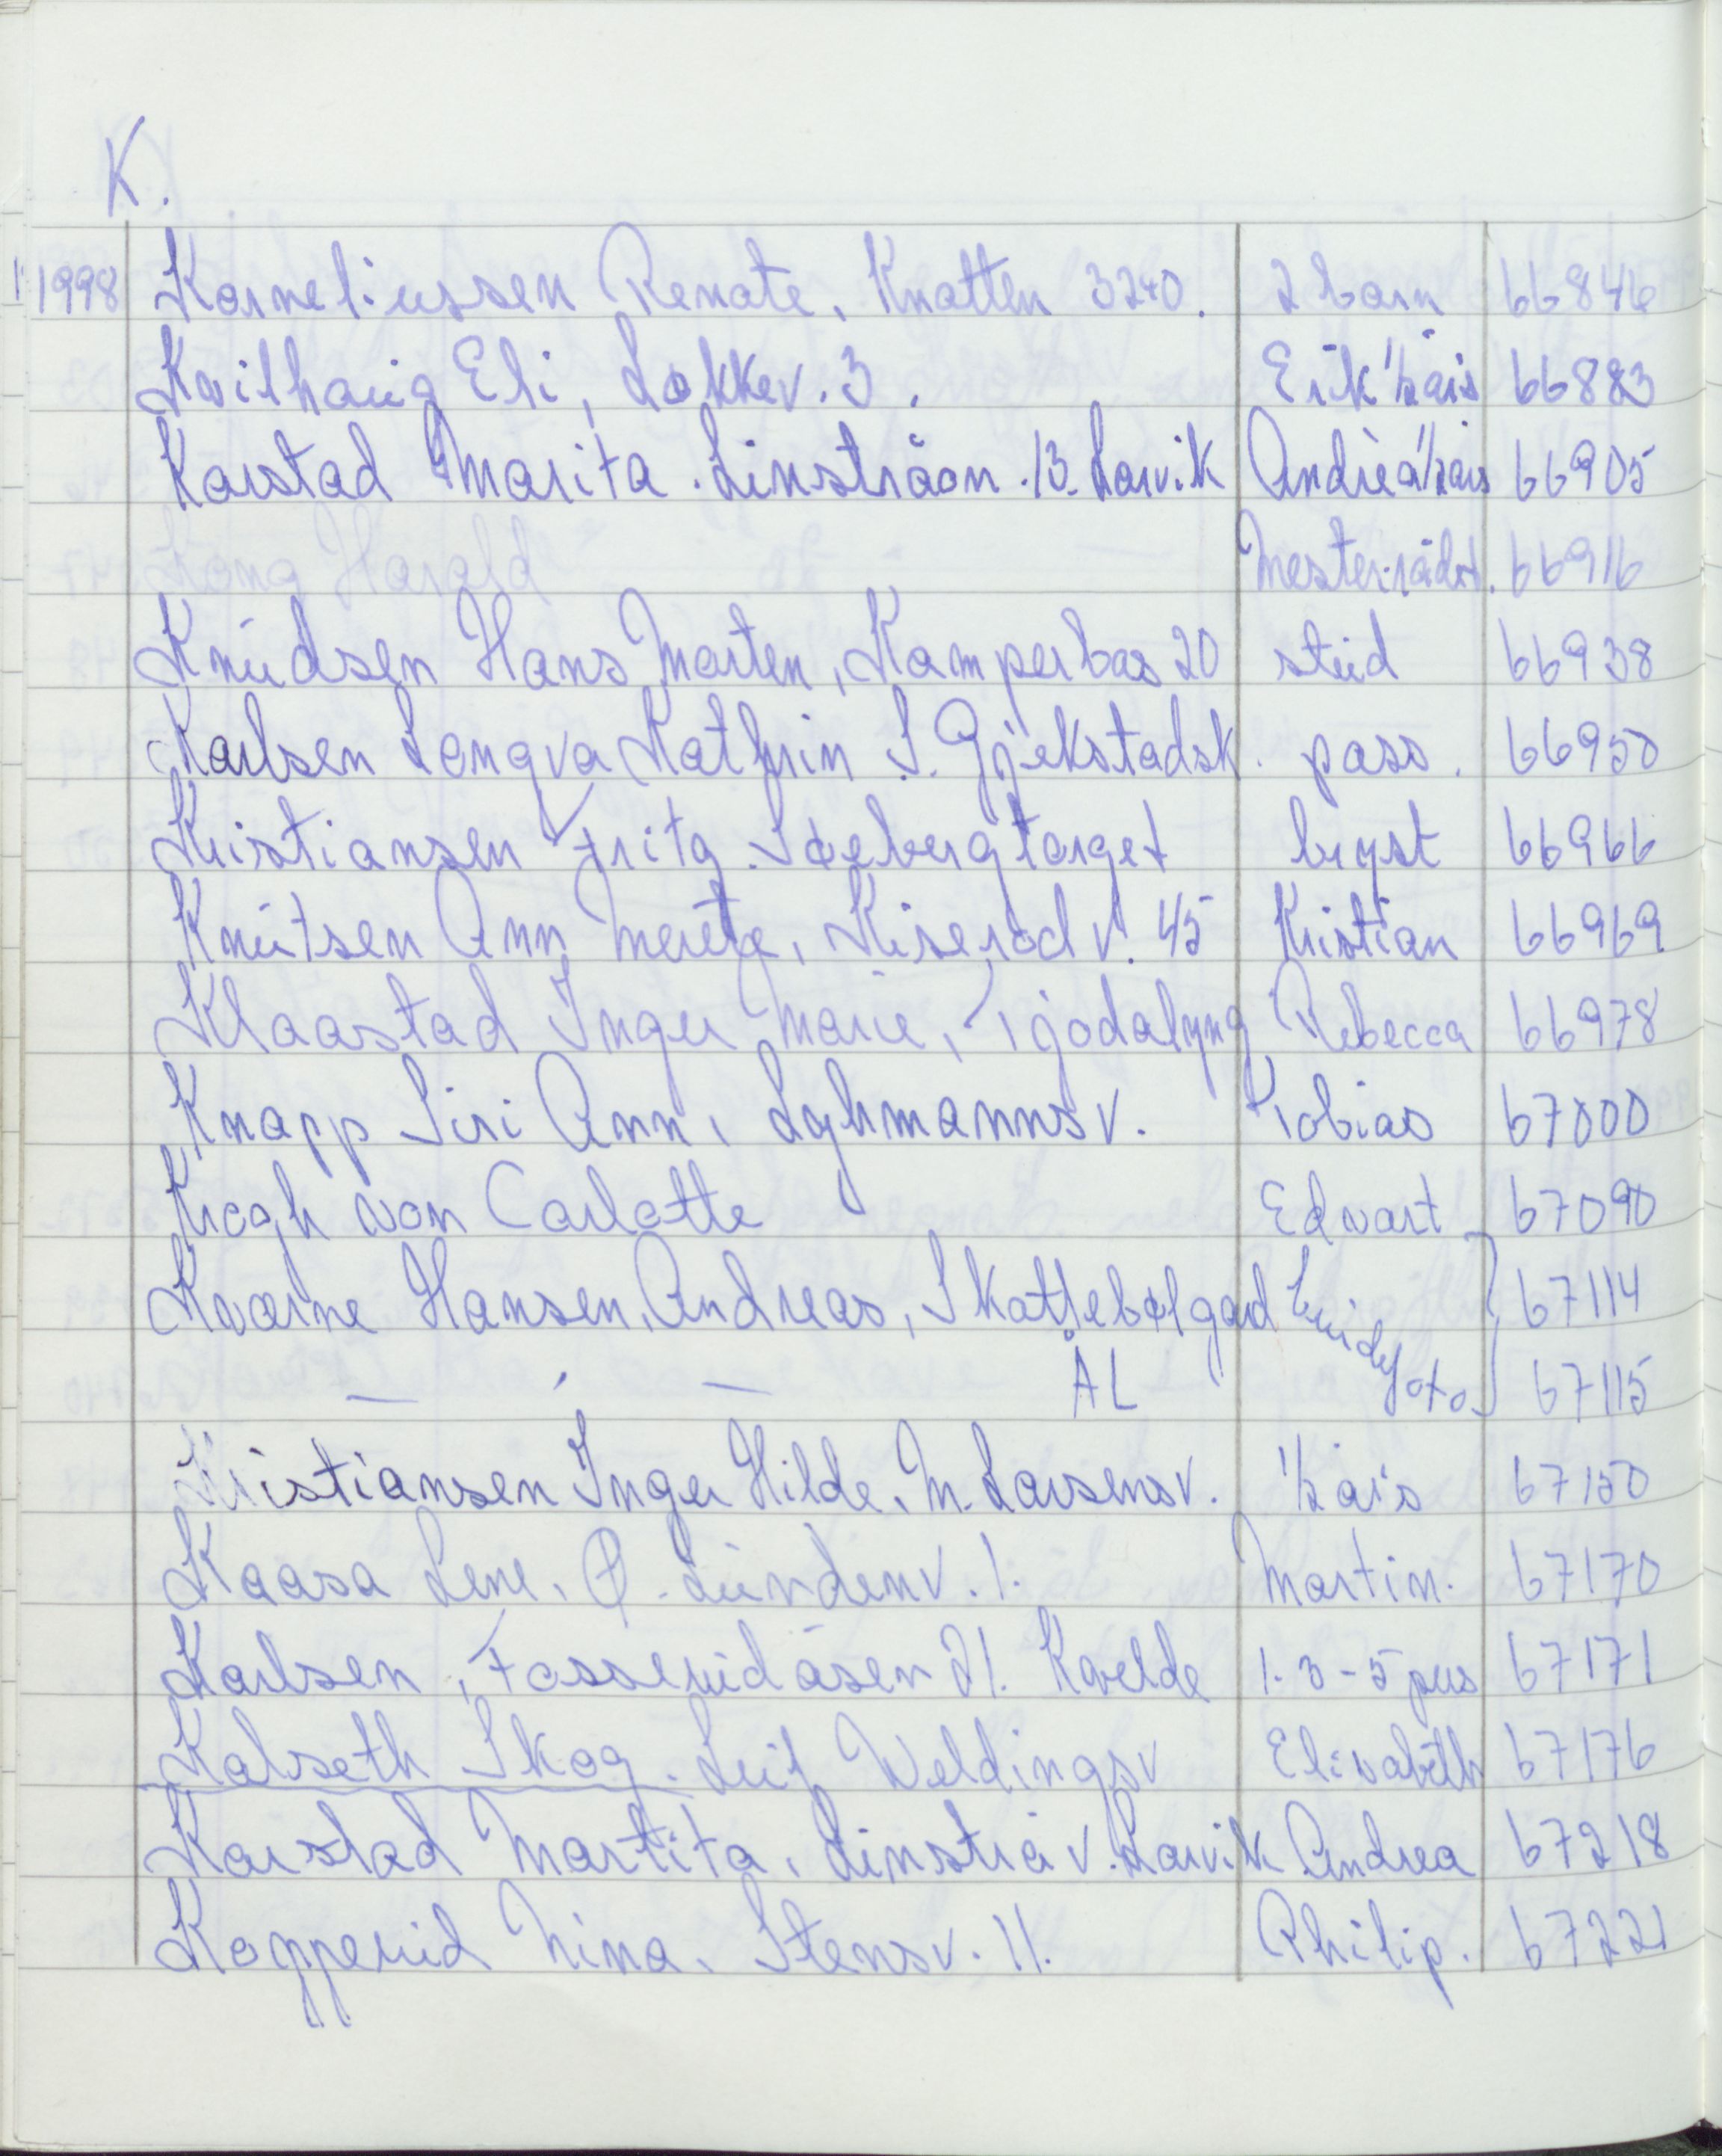 K.
1998 Korneliussen Renate, Knatten 3240. 2 barn 66846
Kvilhaug Eli, Løkkev. 3. Erik 1/2 års 66883
Karstad Marita. Linstråon. 13. Larvik Andrèa 1/2 års 66905
66916
Knudsen Hans Marten, Kamperbas 20 stud 66938
Karlsen Longva Kathrin S. Gjekstadsk. pass. 66950
Kristiansen Fritz. Soebergtorget bryst 66966
Knutsen Ann Merete, Kiserød v. 45 Kristian 66969
Klaastad Inger Marie, Tjodalyng Rebecca 66978
Knapp Siri Ann, Lyhmannsv. Tobias 67000
Krogh von Carlotte Edvart 67090
Kvarne Hansen, Andreas, Skattebølgard brudefoto 67114
— , — ÅL 67115
Kristiansen Inger Hilde, M. Larsensv. 1/2 års 67150
Kaasa Lene, O. Lundenv. 1. Martin. 67170
Karlsen, Fosserudåsen 21. Kvelde 1. 3 - 5 pers 67171
Kalseth Skog. Leif Weldingsv Elisabeth 67176
Karstad Martita, Linstrå v. Larvik Andrea 67218
Kopperud Nina. Stensv. 11. Philip. 67221